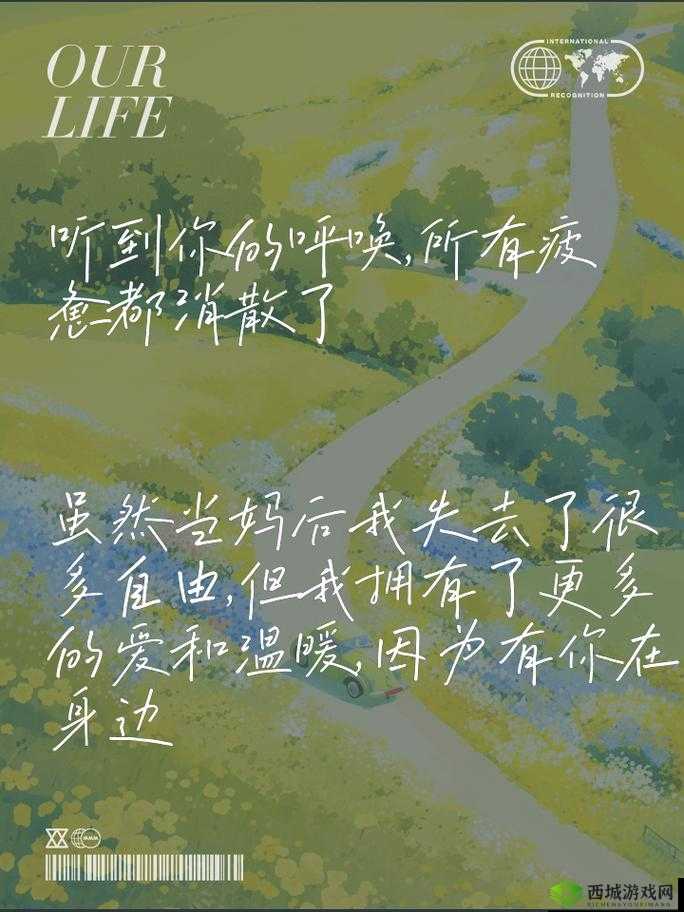 OUR
LIFE
INTERNATIONAL
RECOGNITION
听到你的呼唤,所有疲
惫都消散了
虽然当妈后我失去了很
多自由,但我拥有了更多
的爱和温暖,因为有你在
身边
西城游戏网
XICHENGYOUXIWANG